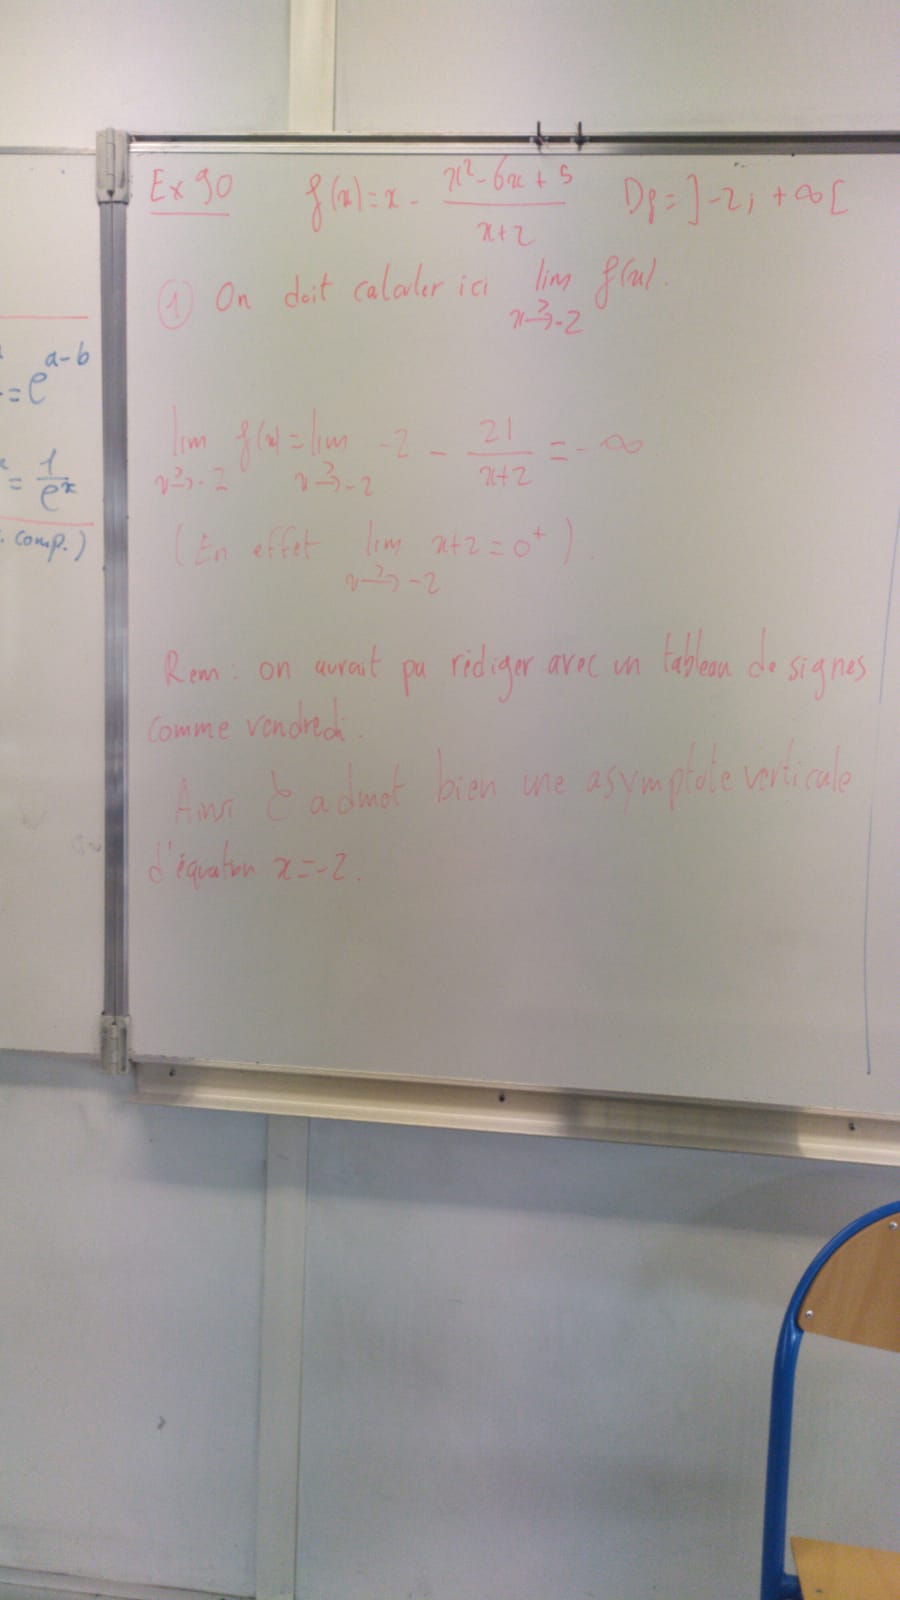 Ex 90 f(x) = x - (x² - 6x + 5)/(x+2) Df = ]-2; +∞[
① On doit calculer ici lim f(x).
x →^> -2
lim f(x) = lim -2 - 21/(x+2) = -∞
x →^> -2 x →^> -2
(En effet lim x+2 = 0⁺).
x →^> -2
Rem : on aurait pu rédiger avec un tableau de signes
comme vendredi.
Ainsi C admet bien une asymptote verticale
d'équation x = -2.
a-b
= e
= 1/eˣ
comp.)